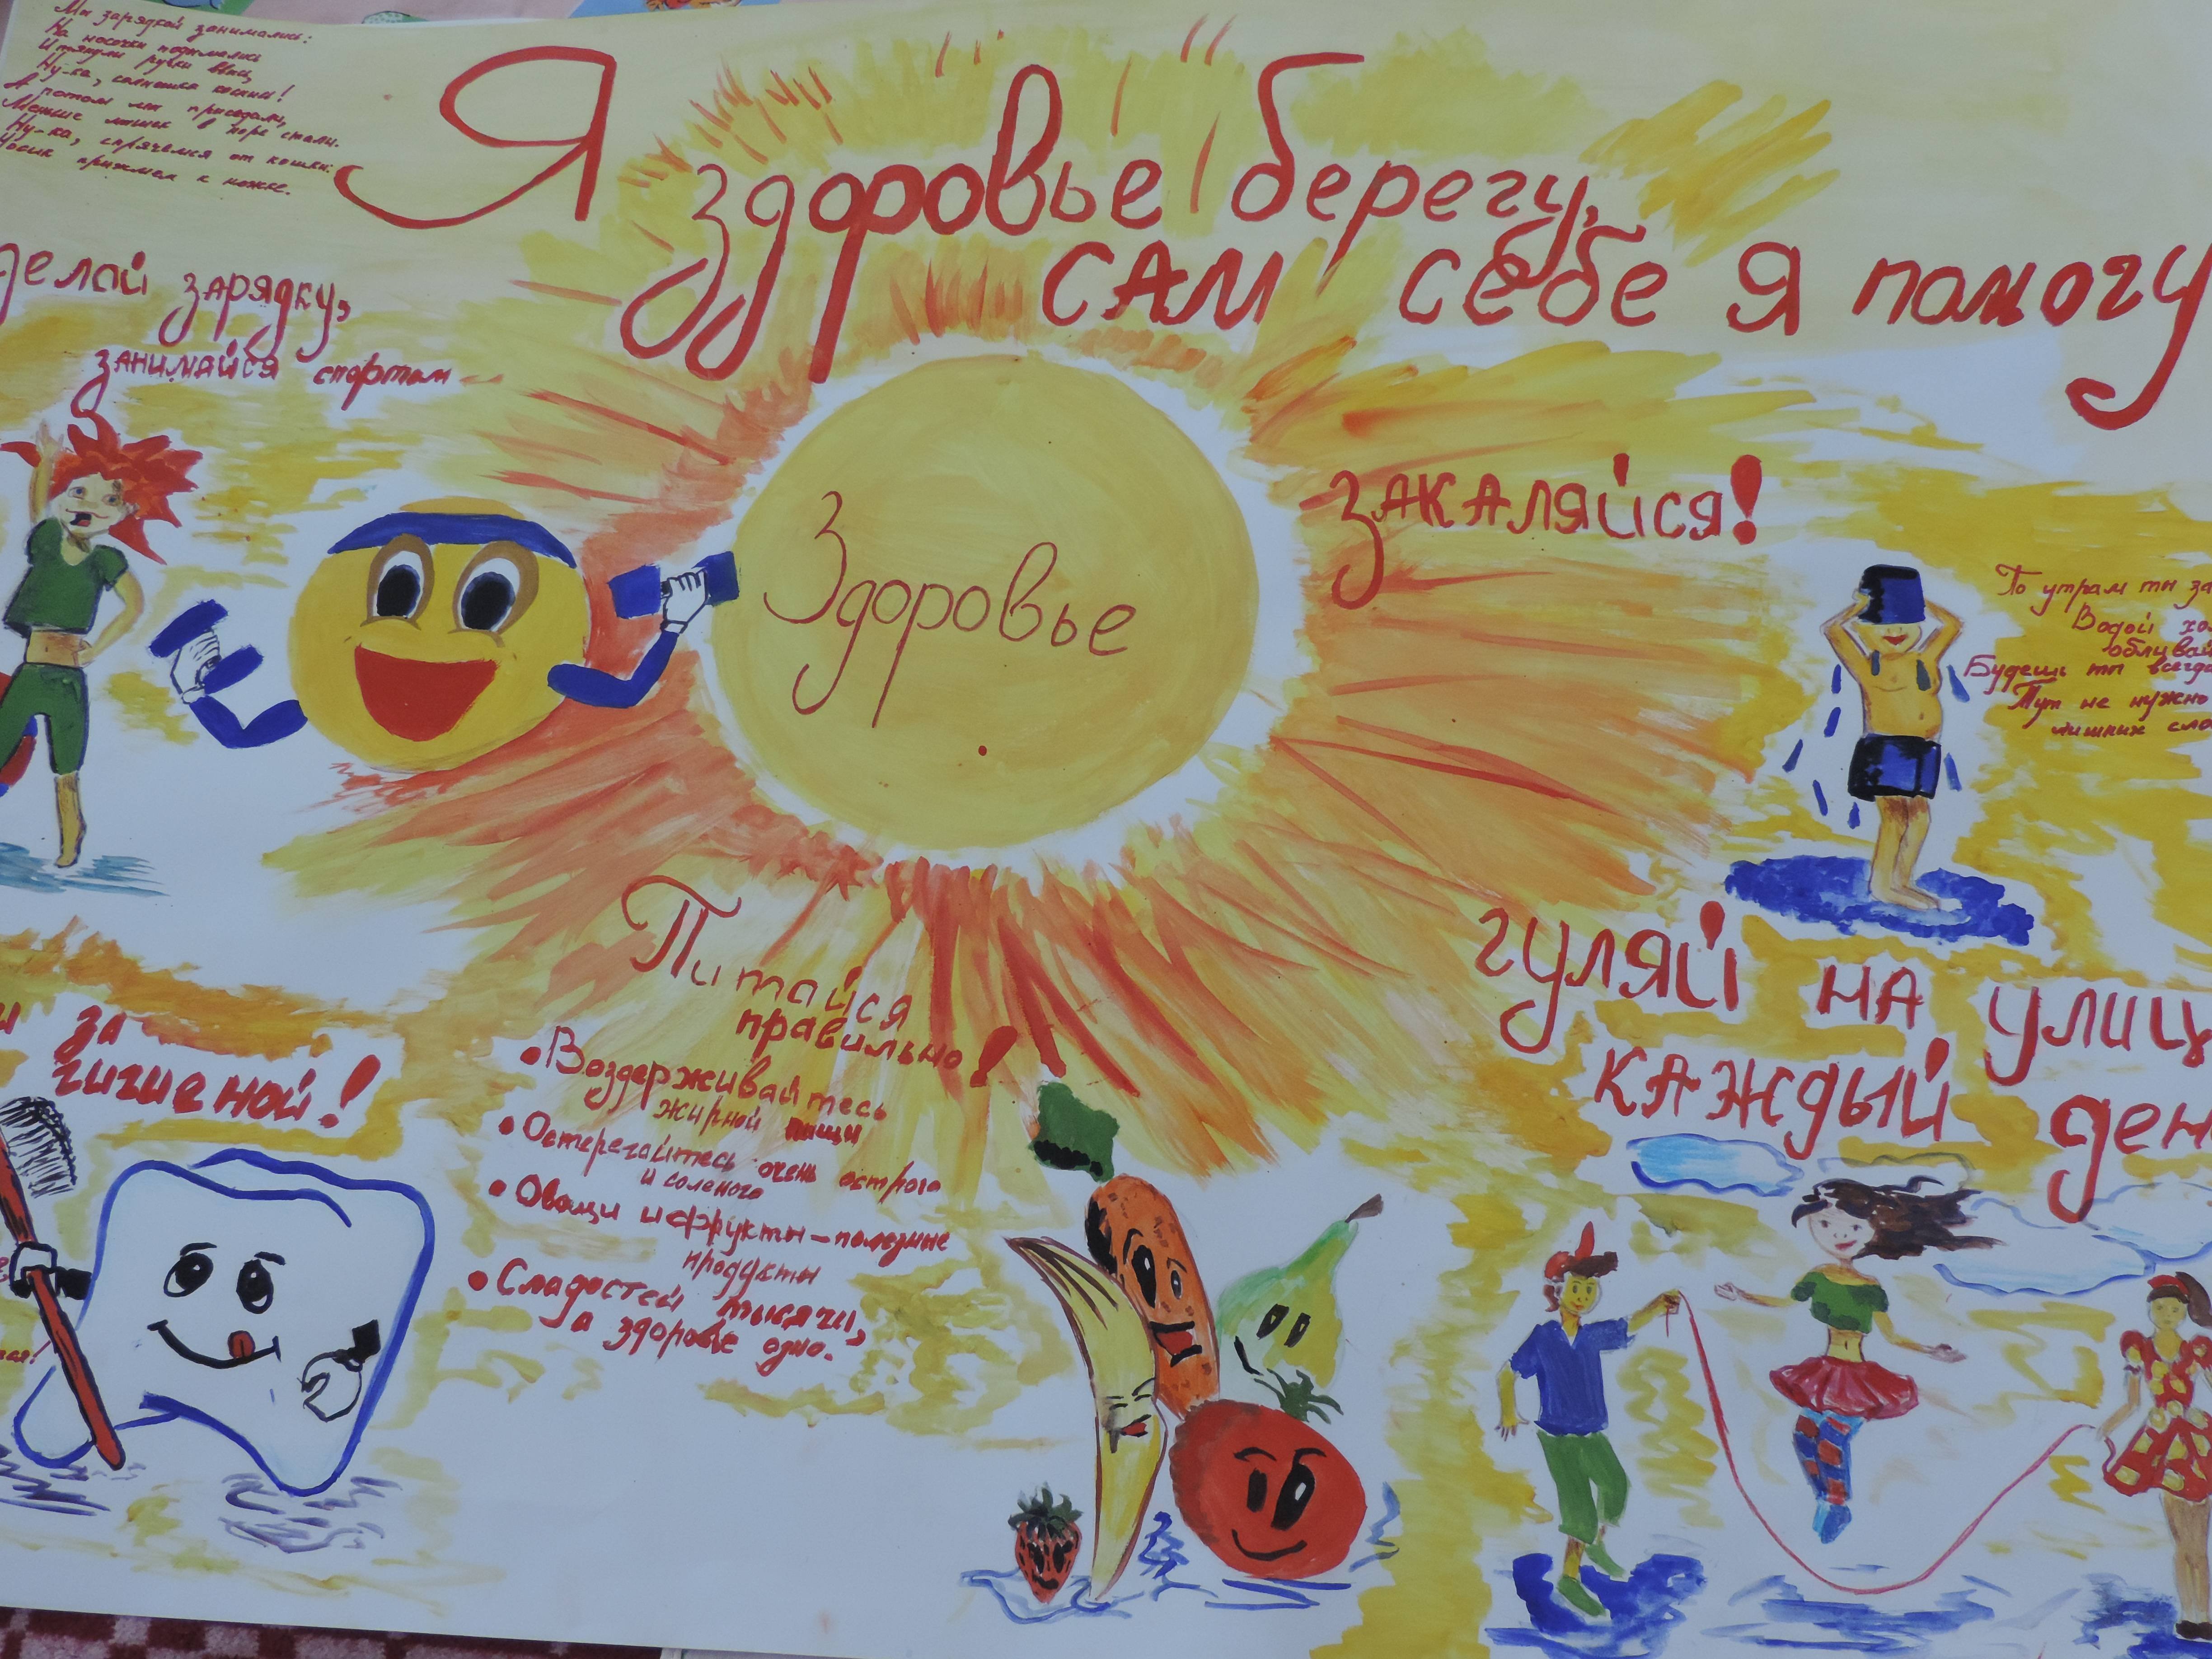 Мы зарядкой занимались:
На носочки поднимались
И тянули ручки ввысь
Ну-ка, солнышка коснись!
А потом мы приседали,
Меньше мышек в норе стали.
Ну-ка, спрячемся от кошки:
Носик прижмем к ножке.
Я здоровье берегу,
САМ себе я помогу
делай зарядку,
занимайся спортом
Здоровье
закаляйся!
По утрам ты за
Водой хо
обливай
Будешь ты всегда
Тут не нужно
лишних сло
за
гигиеной!
Питайся
правильно!
• Воздерживайтесь
жирной пищи
• Остерегайтесь очень острого
и соленого
• Овощи и фрукты – полезные
продукты
• Сладостей тысячи,
а здоровье одно.
гуляй на улиц
каждый ден